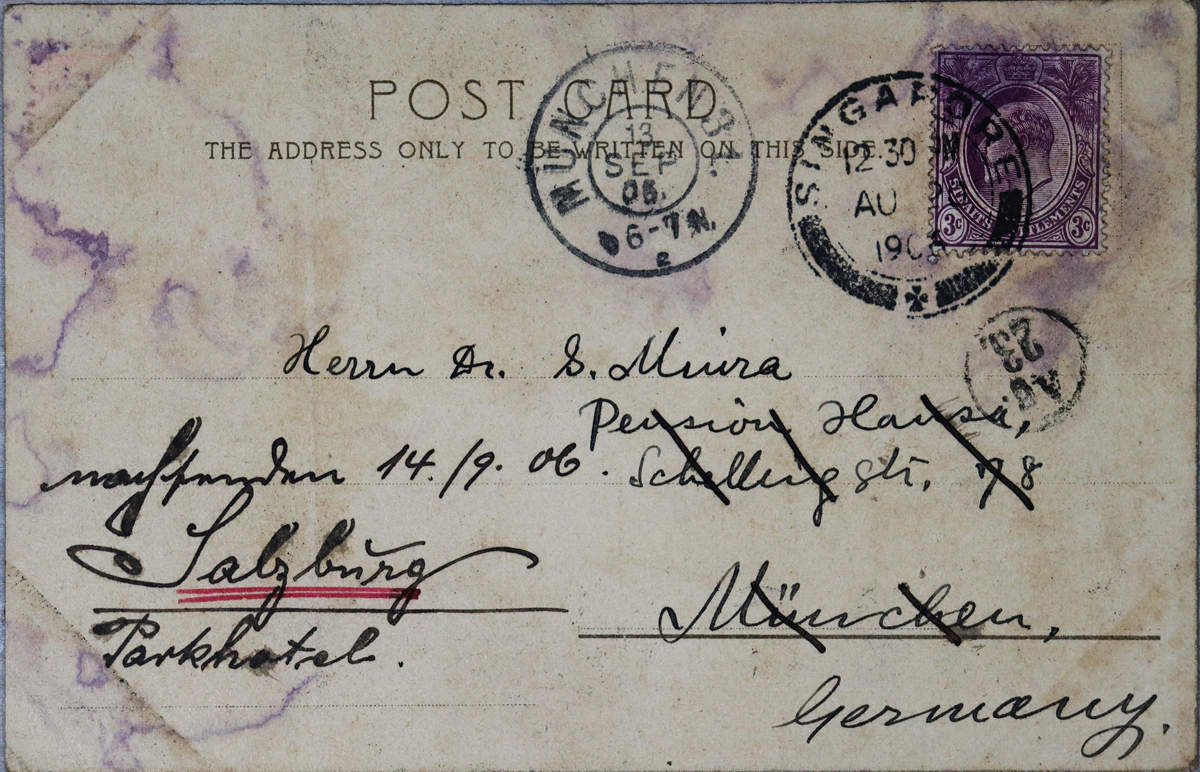 POST CARD
THE ADDRESS ONLY TO BE WRITTEN ON THIS SIDE.
MÜNCHEN 31.
13
SEP
06.
6-7 N.
2
SINGAPORE
12 30 PM
AU
190
STRAITS SETTLEMENTS
3c 3c
AU.
23.
Herrn Dr. S. Miura
Pension Hansa,
Schellingstr. 78
nachsenden 14./9. 06.
Salzburg
Parkhotel.
München,
Germany.